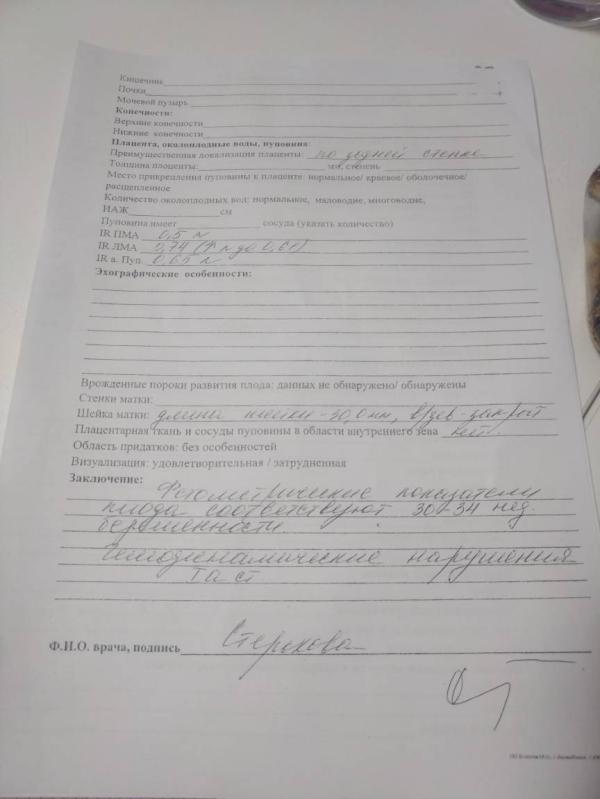 Кишечник
Почки
Мочевой пузырь
Конечности:
Верхние конечности
Нижние конечности
Плацента, околоплодные воды, пуповина:
Преимущественная локализация плаценты: по задней стенке
Толщина плаценты: мм, степень
Место прикрепления пуповины к плаценте: нормальное/ краевое/ оболочечное/
расщепленное
Количество околоплодных вод: нормальное, маловодие, многоводие,
НАЖ см
Пуповина имеет сосуда (указать количество)
IR ПМА 0,5 N
IR ЛМА 0,74 (↑ N до 0,61)
IR а. Пуп. 0,65 N
Эхографические особенности:
Врожденные пороки развития плода: данных не обнаружено/ обнаружены
Стенки матки:
Шейка матки: длина шейки - 30,0 мм, в/зев - закрыт
Плацентарная ткань и сосуды пуповины в области внутреннего зева нет.
Область придатков: без особенностей
Визуализация: удовлетворительная / затрудненная
Заключение:
Фетометрические показатели
плода соответствуют 30-34 нед.
беременности.
Гемодинамические нарушения
Ia ст
Ф.И.О. врача, подпись